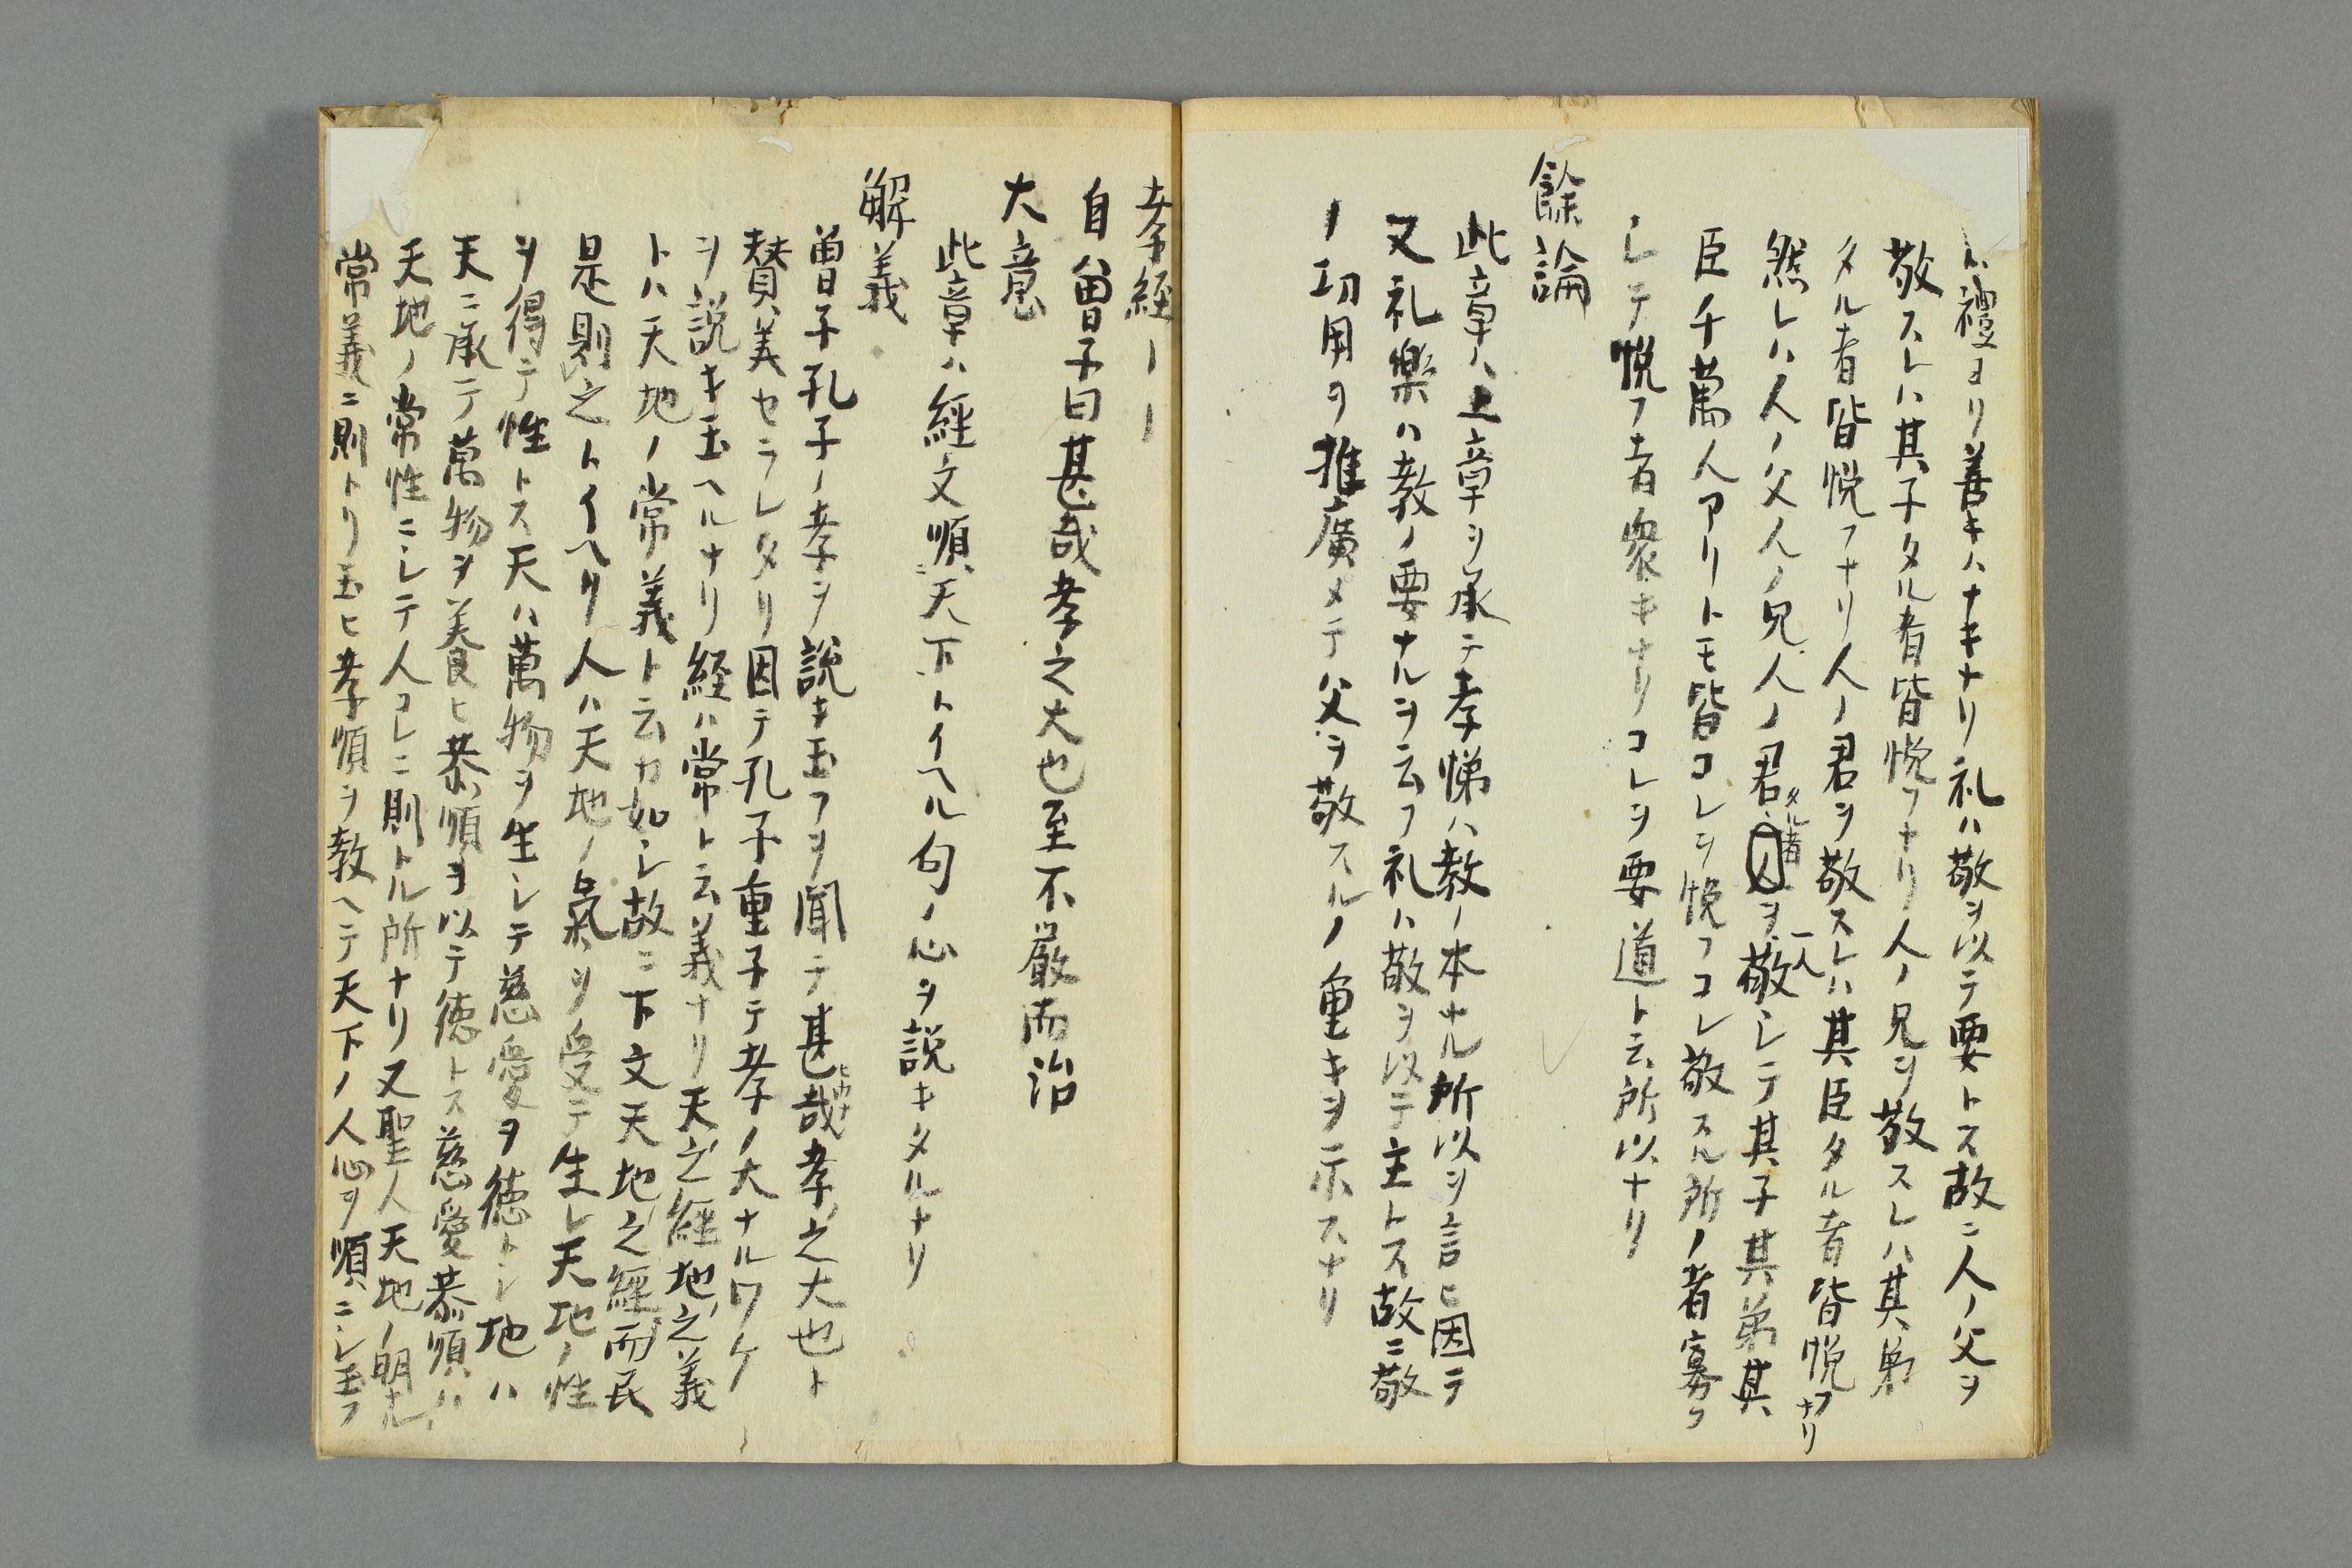 ハ禮ヨリ善キハナキナリ礼ハ敬ヲ以テ要トス故ニ人ノ父ヲ
敬スレハ其子タル者皆悦フナリ人ノ兄ヲ敬スレハ其弟
タル者皆悦フナリ人ノ君ヲ敬スレハ其臣タル者皆悦フナリ
然レハ人ノ父人ノ兄人ノ君タル者一人ヲ敬シテ其子其弟其
臣千萬人アリトモ皆コレヲ悦フコレ敬スル所ノ者寡フ
シテ悦フ者衆キナリコレヲ要道ト云所以ナリ
餘論
此章ハ上章ヲ承テ孝悌ハ教ノ本ナル所以ヲ言ヒ因テ
又礼樂ハ教ノ要ナルヲ云フ礼ハ敬ヲ以テ主トス故ニ敬
ノ功用ヲ推廣メテ父ヲ敬スルノ重キヲ示スナリ
孝経ーー
自曾子曰甚哉孝之大也至不嚴而治
大意
此章ハ經文順天下トイヘル句ノ心ヲ説キタルナリ
解義
曾子孔子ノ孝ヲ説キ玉フヲ聞テ甚哉孝之大也ト
賛美セラレタリ因テ孔子重子テ孝ノ大ナルワケ
ヲ説キ玉ヘルナリ経ハ常ト云義ナリ天之経地之義
トハ天地ノ常義ト云カ如シ故ニ下文天地之經而民
是則之トイヘリ人ハ天地ノ氣ヲ受テ生レ天地ノ性
ヲ得テ性トス天ハ萬物ヲ生シテ慈愛ヲ徳トシ地ハ
天ニ承テ萬物ヲ養ヒ恭順ヲ以テ徳トス慈愛恭順ハ
天地ノ常性ニシテ人コレニ則トル所ナリ又聖人天地ノ明ナル
常義ニ則トリ玉ヒ孝順ヲ教ヘテ天下ノ人心ヲ順ニシ玉フ